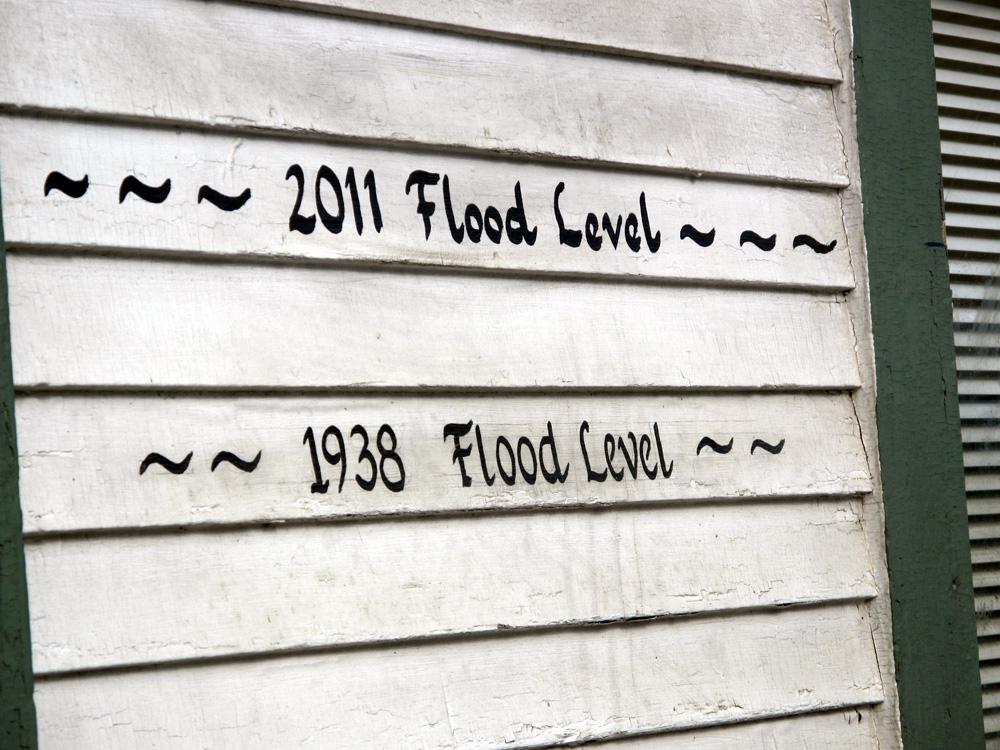 ~ ~ ~ 2011 Flood Level ~ ~ ~
~ ~ 1938 Flood Level ~ ~